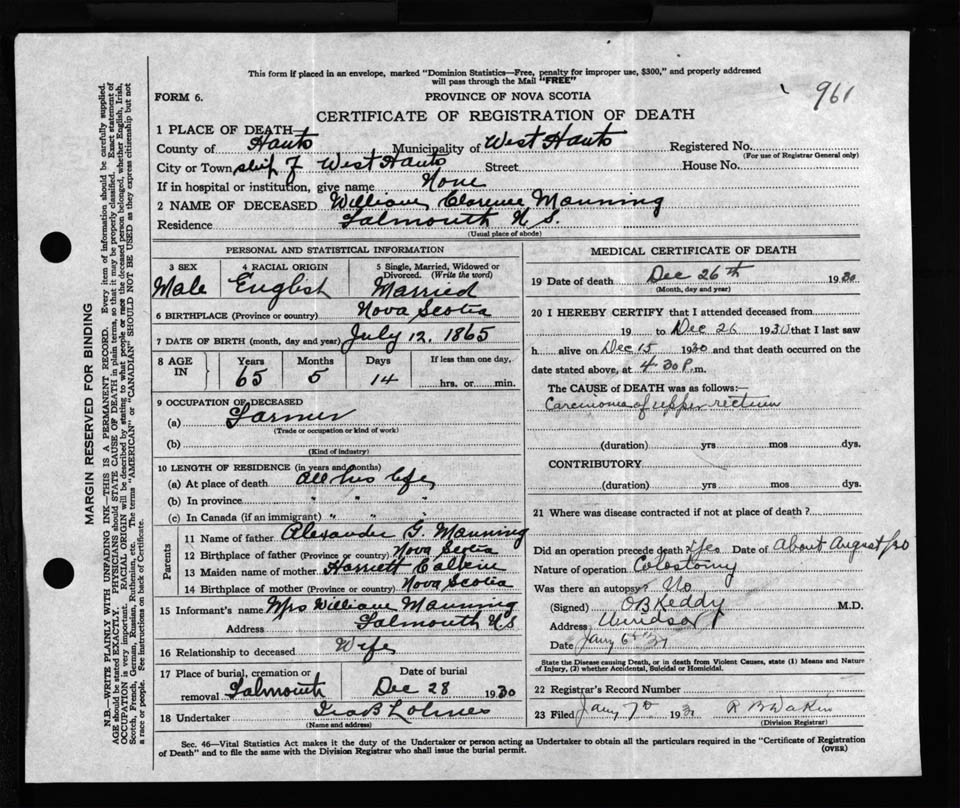 This form if placed in an envelope, marked "Dominion Statistics—Free, penalty for improper use, $300," and properly addressed
will pass through the Mail "FREE"
961
FORM 6.
PROVINCE OF NOVA SCOTIA
CERTIFICATE OF REGISTRATION OF DEATH
1 PLACE OF DEATH
County of Hants Municipality of West Hants Registered No.
(For use of Registrar General only)
City or Town ship of West Hants Street House No.
If in hospital or institution, give name None
2 NAME OF DECEASED William Clarence Manning
Residence Falmouth N.S.
(Usual place of abode)
PERSONAL AND STATISTICAL INFORMATION
3 SEX 4 RACIAL ORIGIN 5 Single, Married, Widowed or
Divorced. (Write the word)
Male English Married
6 BIRTHPLACE (Province or country) Nova Scotia
7 DATE OF BIRTH (month, day and year) July 12, 1865
8 AGE IN Years Months Days If less than one day,
65 5 14 hrs. or min.
9 OCCUPATION OF DECEASED
(a) Farmer
(Trade or occupation or kind of work)
(b)
(Kind of industry)
10 LENGTH OF RESIDENCE (in years and months)
(a) At place of death All his life
(b) In province " " "
(c) In Canada (if an immigrant) " " "
Parents
11 Name of father Alexander G. Manning
12 Birthplace of father (Province or country) Nova Scotia
13 Maiden name of mother Harriett
14 Birthplace of mother (Province or country) Nova Scotia
15 Informant's name Mrs William Manning
Address Falmouth N.S
16 Relationship to deceased Wife
17 Place of burial, cremation or Date of burial
removal Falmouth Dec 28 1930
18 Undertaker Ira B Lohnes
(Name and address)
MEDICAL CERTIFICATE OF DEATH
19 Date of death Dec 26th 1930
(Month, day and year)
20 I HEREBY CERTIFY that I attended deceased from
19 to Dec 26 1930 that I last saw
h alive on Dec 15 1930 and that death occurred on the
date stated above, at 4 30 P.m.
The CAUSE of DEATH was as follows:—
Carcinoma of upper rectum
(duration) yrs mos dys.
CONTRIBUTORY
(duration) yrs mos dys.
21 Where was disease contracted if not at place of death?
Did an operation precede death? Yes Date of About August/30
Nature of operation Colostomy
Was there an autopsy? No
(Signed) O B Keddy M.D.
Address Windsor
Date Jany 6th 31
State the Disease causing Death, or in death from Violent Causes, state (1) Means and Nature
of Injury, (2) whether Accidental, Suicidal or Homicidal.
22 Registrar's Record Number
23 Filed Jany 7th 1931 R B Dakin
(Division Registrar)
Sec. 46—Vital Statistics Act makes it the duty of the Undertaker or person acting as Undertaker to obtain all the particulars required in the "Certificate of Registration
of Death" and to file the same with the Division Registrar who shall issue the burial permit.
(OVER)
MARGIN RESERVED FOR BINDING
N.B.—WRITE PLAINLY WITH UNFADING INK—THIS IS A PERMANENT RECORD. Every item of information should be carefully supplied.
AGE should be stated EXACTLY. PHYSICIANS should STATE CAUSE OF DEATH in plain terms, so that it may be properly classified. Exact statement of
OCCUPATION is very important. RACIAL ORIGIN will be described by stating to what people or race the deceased person belonged, whether English, Irish,
Scotch, French, German, Russian, Ruthenian, etc. The terms "AMERICAN" or "CANADIAN" SHOULD NOT BE USED as they express citizenship but not
a race or people. See instructions on back of Certificate.